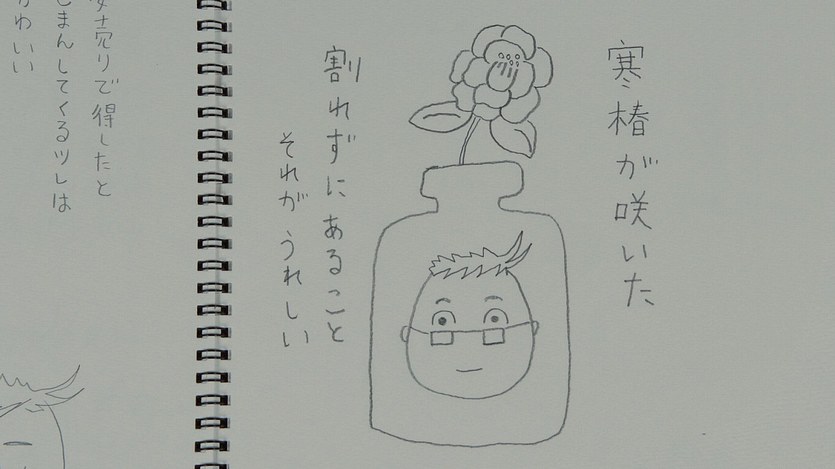 寒椿が咲いた
割れずにあること
それがうれしい
売りで得したと
じまんしてくるツレは
かわいい